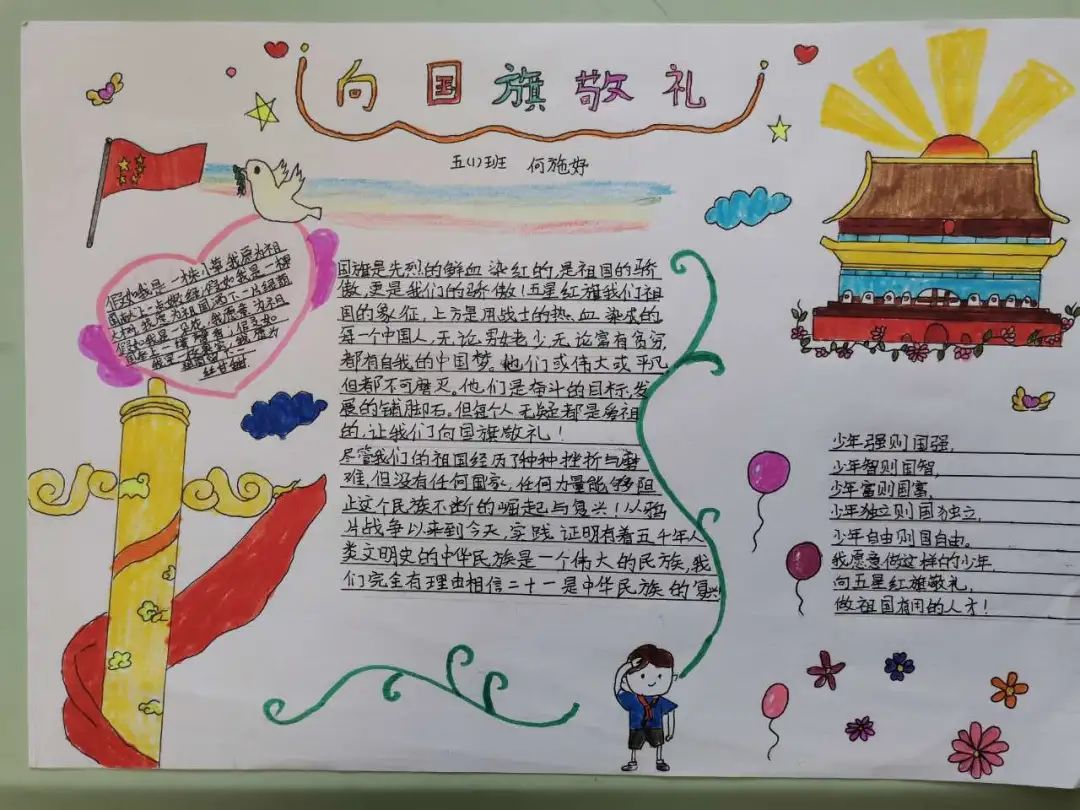 向国旗敬礼
五(1)班 何施妤
假如我是一株小草,我愿为祖
国献上一点嫩绿;假如我是一棵
大树,我愿为祖国洒下一片绿荫
国旗是先烈的鲜血染红的,是祖国的骄
傲,更是我们的骄傲!五星红旗我们祖
国的象征,上方是用战士的热血染成的
每一个中国人,无论男女老少,无论富有贫穷,
都有自我的中国梦。她们或伟大或平凡
但都不可磨灭。他们是奋斗的目标,发
展的铺脚石。但每个人无疑都是爱祖
的,让我们向国旗敬礼!
尽管我们的祖国经历了种种挫折与磨
难,但没有任何国家,任何力量能够阻
止这个民族不断的崛起与复兴!从鸦
片战争以来到今天,实践证明有着五千年人
类文明史的中华民族是一个伟大的民族,我
们完全有理由相信二十一是中华民族的复兴
少年强则国强,
少年智则国智,
少年富则国富,
少年独立则国独立,
少年自由则国自由。
我愿意做这样的少年,
向五星红旗敬礼,
做祖国有用的人才!